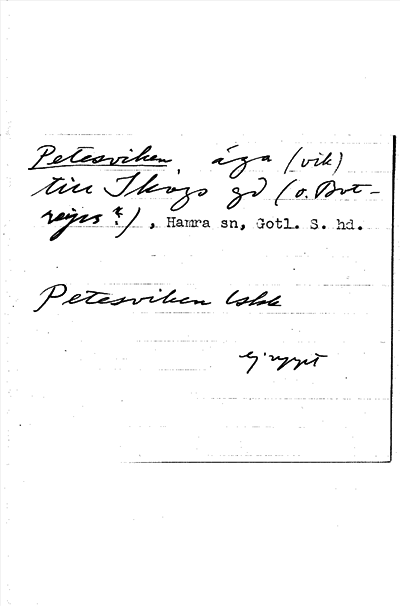 Petesviken äga (vik)
till Skogs gd (o. Bot-
reifs?), Hamra sn, Gotl. S. hd.
Petesviken
ej uppt